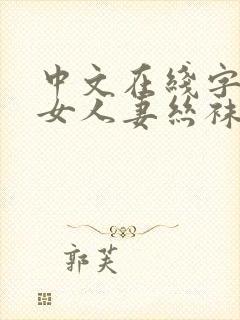 中文在线字
女人妻丝袜
郭芙